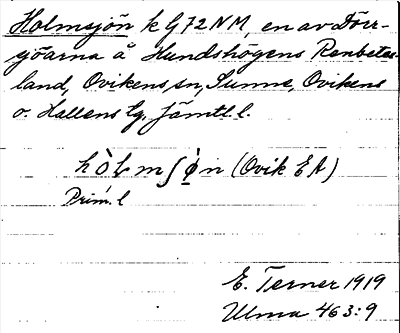 Holmsjön k G72NM, en av Dörr-
sjöarna å Hundshögens Renbetes-
land, Ovikens sn, Sunne, Ovikens
o. Hallens tg. Jämtl. l.
(Ovik EA)
Prim. l
E. Terner 1919
Ulma 463:9